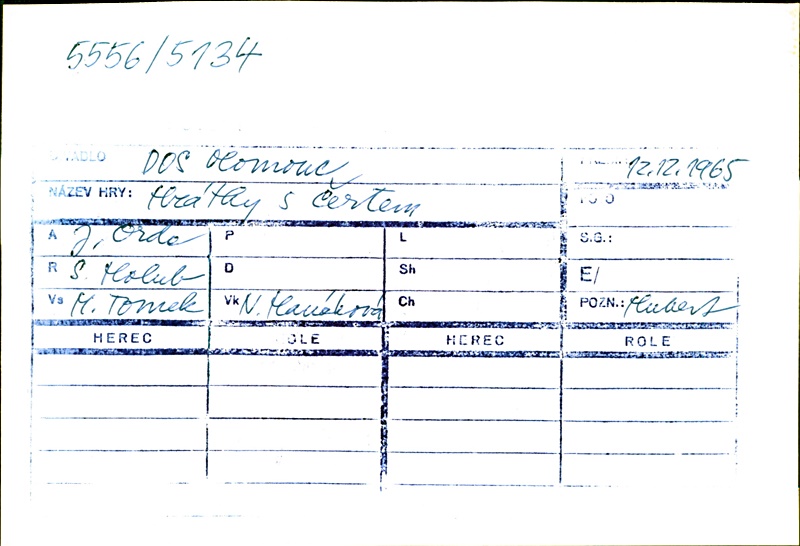 5556/5134
DOS Olomouc 12.12.1965
NÁZEV HRY: Hrátky s čertem
A J. Orda P L S.G.:
R S. Holub D Sh E/
Vs M. Tomek Vk N. Hanáková Ch POZN.: Hubert
HEREC OLE HEREC ROLE